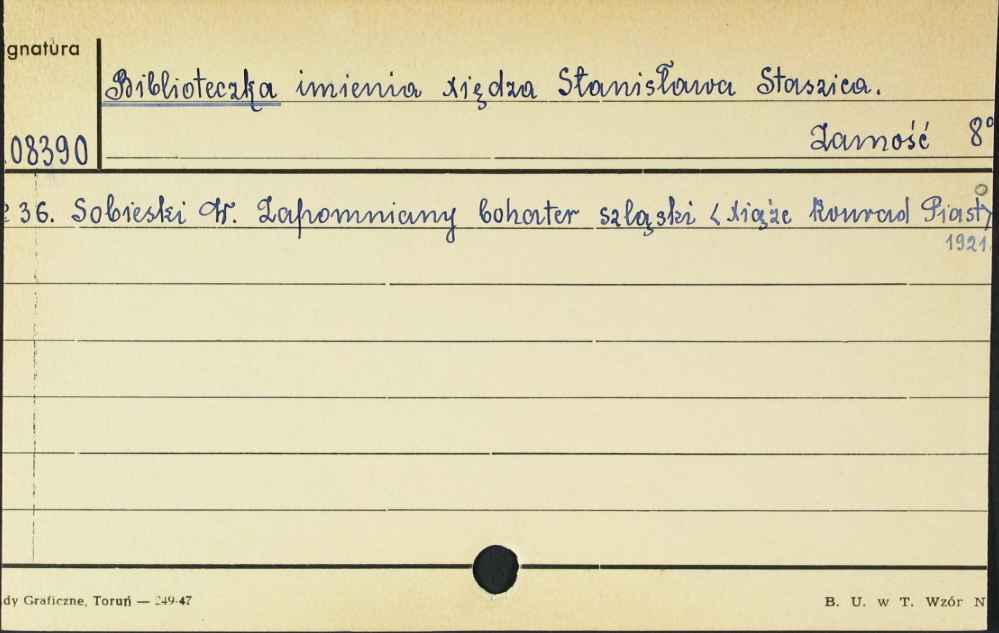 ignatura
Biblioteczka imienia xiędza Stanisława Staszica.
Zamość 8°
08390
36. Sobieski W. Zapomniany bohater szląski < xiąże Konrad Piast>
1921.
dy Graficzne, Toruń — 249-47
B. U. w T. Wzór N